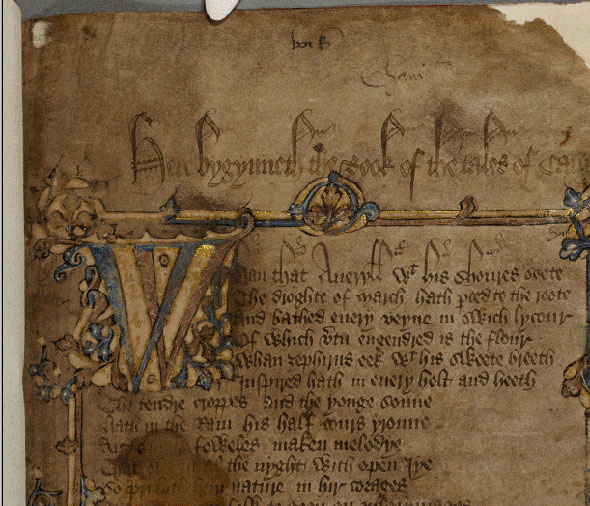 Here bygynneth the Book of the tales of Cau
Whan that Aueryll wt his shoures soote
The droghte of March hath pced to the roote
And bathed euery veyne in swich lycour
Of which vtu engendred is the flour
Whan zephirus eek wt his sweete breeth
Inspired hath in euery holt and heeth
The tendre croppes and the yonge sonne
Hath in the Ram his half cours yronne
And foweles maken melodye
That al the nyght with open Iye
So priketh hem nature in hir corages
folk to goon on pilgrymages